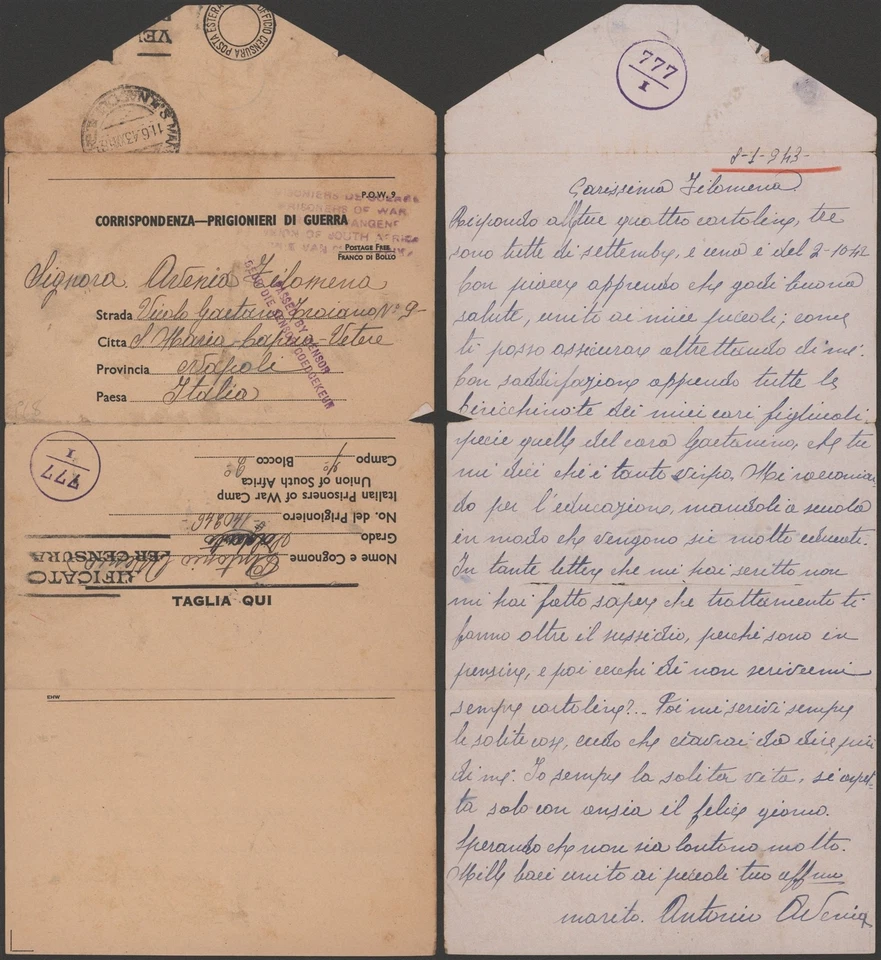 UFFICIO CENSURA POSTA ESTERA
VE
11.6.43
P.O.W. 9
PRISONIERS DE GUERRE
PRISONERS OF WAR
UNION OF SOUTH AFRICA
CORRISPONDENZA—PRIGIONIERI DI GUERRA
POSTAGE FREE
FRANCO DI BOLLO
Signora Avenia Filomena
PASSED BY CENSOR
DEUR DIE SENSOR GOEDGEKEUR
Strada Vicolo Gaetano Troiano N° 9-
Citta S. Maria-Capua-Vetere
Provincia Napoli
Paesa Italia
777
I
TAGLIA QUI
Nome e Cognome Antonio Avenia
Grado
No. del Prigioniero 140246-
Italian Prisoners of War Camp
Union of South Africa
Campo Blocco
RIFICATO
PER CENSURA
EHW
777
I
8-1-943-
Carissima Filomena
Rispondo alle tue quattro cartoline, tre
sono tutte di settembre, e una è del 2-10-42
Con piacere apprendo che godi buona
salute, unito ai miei piccoli; come
ti posso assicurare altrettando di me.
Con soddisfazione apprendo tutte le
biricchinate dei miei cari figliuoli
specie quelle del caro Gaetanino, che tu
mi dici che è tanto vispo. Mi raccoman-
do per l'educazione, mandali a scuola
in modo che vengono su molto educati.
In tante lettere che mi hai scritto non
mi hai fatto sapere che trattamento ti
fanno oltre il sussidio, perchè sono in
pensiere, e poi cerchi di non scrivermi
sempre cartoline?.. Poi mi scrivi sempre
le solite cose, credo che ciavrai da dire più
di me. Io sempre la solita vita, si aspet-
ta solo con ansia il felice giorno.
Sperando che non sia lontano molto.
Mille baci unito ai piccoli tuo affmo
marito. Antonio Avenia